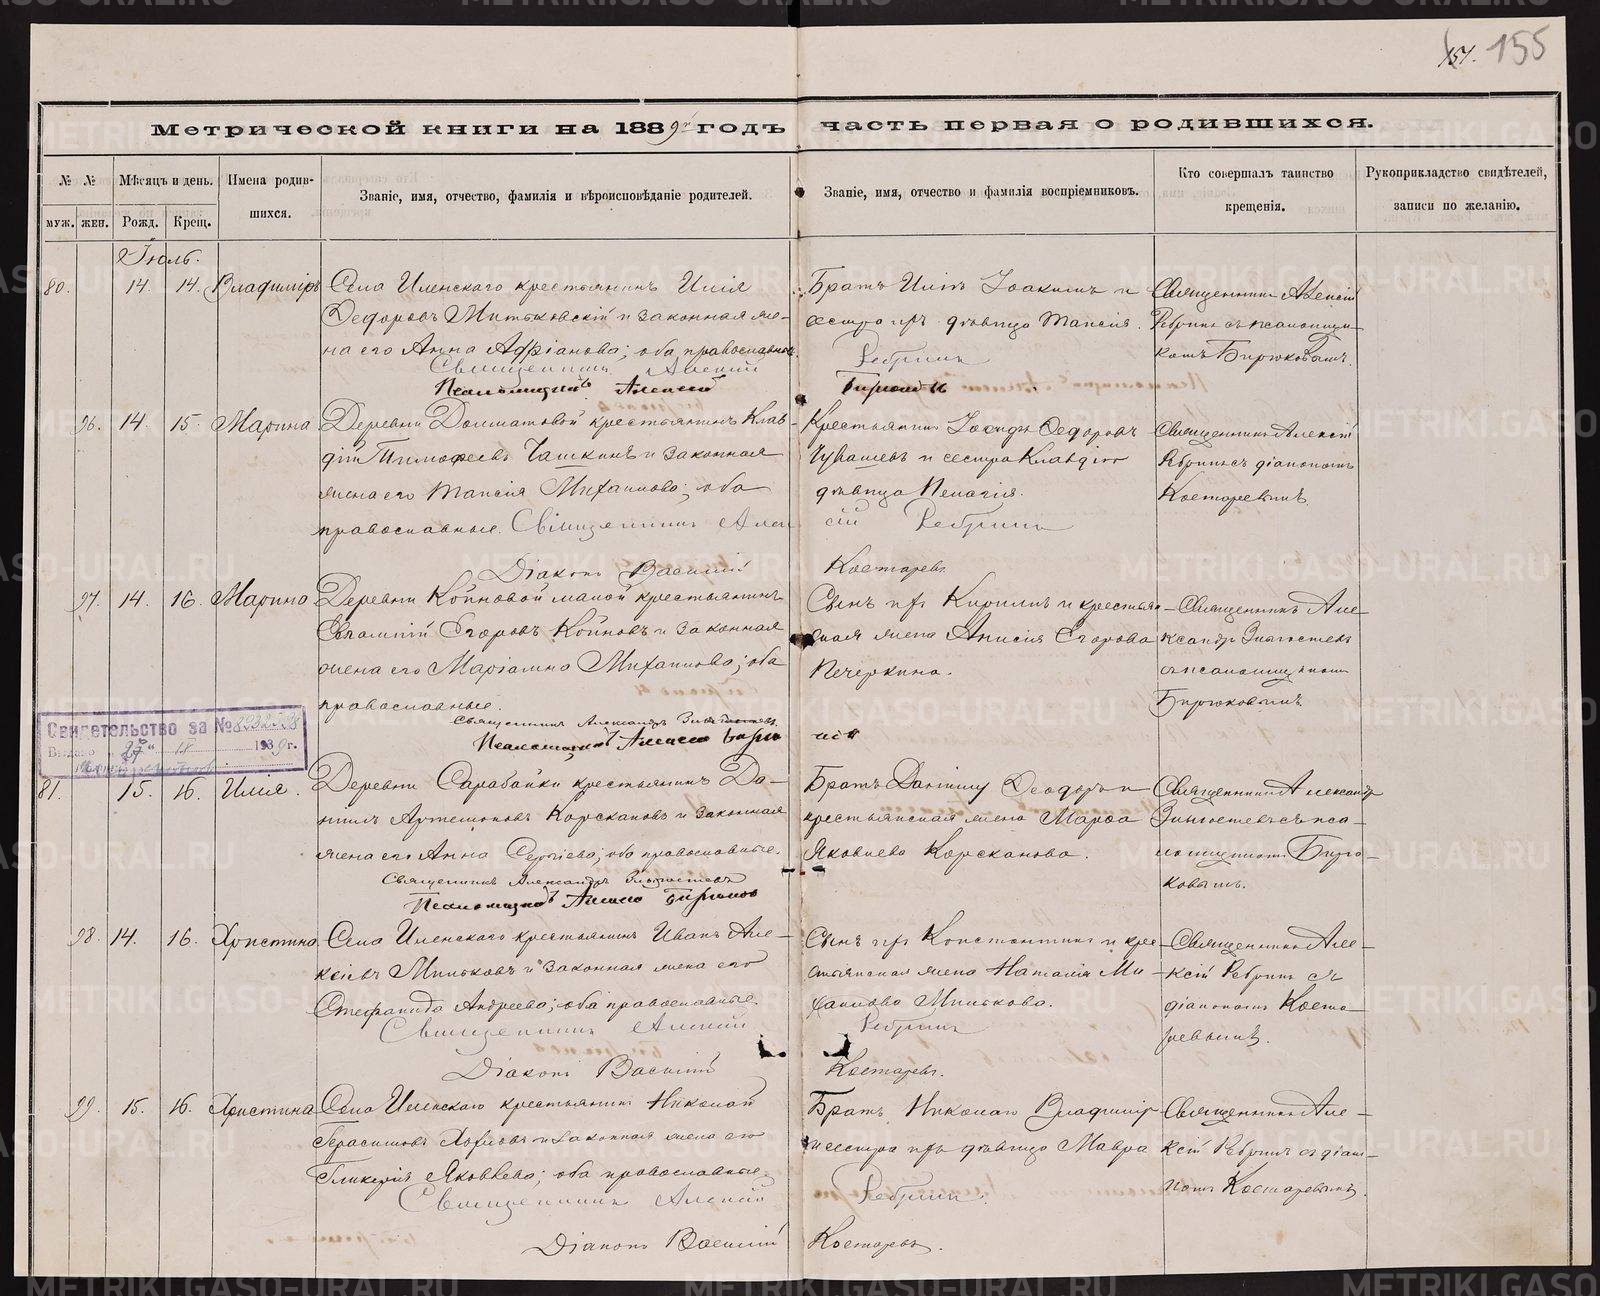 155
Метрической книги на 1889й годъ часть первая о родившихся.
№ № Мѣсяцъ и день. Имена родив-
шихся.
Званіе, имя, отчество, фамилія и вѣроисповѣданіе родителей.
Званіе, имя, отчество и фамилія воспріемниковъ.
Кто совершалъ таинство
крещенія.
Рукоприкладство свидѣтелей,
записи по желанію.
муж. жен. Рожд. Крещ.
Іюль.
80. 14. 14. Владиміръ
Села Иленскаго крестьянинъ Илія
Ѳедоровъ и законная же-
на его Анна Адріанова; оба православные.
Священникъ Алексій
Псаломщикъ Алексій
Братъ Иліи Іоакимъ и
сестра его дѣвица Таисія.
Ребринъ
Бирюковъ
Священникъ Алексій
Ребринъ съ псаломщи-
комъ Бирюковымъ.
96. 14. 15. Марина
Деревни Долматовой крестьянинъ Клав-
дій Тимофеевъ Чашкинъ и законная
жена его Таисія Михаилова; оба
православные. Священникъ Алек
Діаконъ Василій
Крестьянинъ Ѳедоровъ
Чувашевъ и сестра Клавдіи
дѣвица Пелагія.
сій Ребринъ
Костаревъ.
Священникъ Алексій
Ребринъ съ діакономъ
Костаревымъ.
97. 14. 16. Марина
Деревни Койновой малой крестьянинъ
Евгампій Егоровъ Койновъ и законная
жена его Маріамна Михаилова; оба
православные.
Священникъ Александръ
Псаломщикъ Алексій Бирю
Сынъ ихъ Кирилъ и крестьян-
ская жена Анисія Егорова
Печеркина.
Священникъ Але-
ксандръ
съ псаломщикомъ
Бирюковымъ.
Свидетельство за №
27 IX 1939г.
81. 15. 16. Илія.
Деревни Сарабайки крестьянинъ Да-
ніилъ Артемоновъ Корскановъ и законная
жена его Анна Сергіева; оба православные.
Священникъ Александръ
Псаломщикъ Алексій Бирюковъ
Братъ Даніилу Ѳеодоръ и
крестьянская жена Марѳа
Яковлева Корсканова.
Священникъ Александръ
съ пса-
ломщикомъ Бирю-
ковымъ.
98. 14. 16. Христина
Села Иленскаго крестьянинъ Иванъ Але-
ксіевъ Миньковъ и законная жена его
Стефанида Андреева; оба православные.
Священникъ Алексій
Діаконъ Василій
Сынъ ихъ Константинъ и крес-
тьянская жена Наталія Ми
хаилова Минькова.
Ребринъ
Костаревъ.
Священникъ Але-
ксій Ребринъ съ
діакономъ Коста-
ревымъ.
99. 15. 16. Христина
Села Иленскаго крестьянинъ Николай
Герасимовъ и законная жена его
Гликерія Яковлева; оба православные.
Священникъ Алексій
Діаконъ Василій
Братъ Николаю Владиміръ
и сестра ихъ дѣвица Мавра
Ребринъ.
Костаревъ.
Священникъ Але-
ксій Ребринъ съ діак-
номъ Костаревымъ.